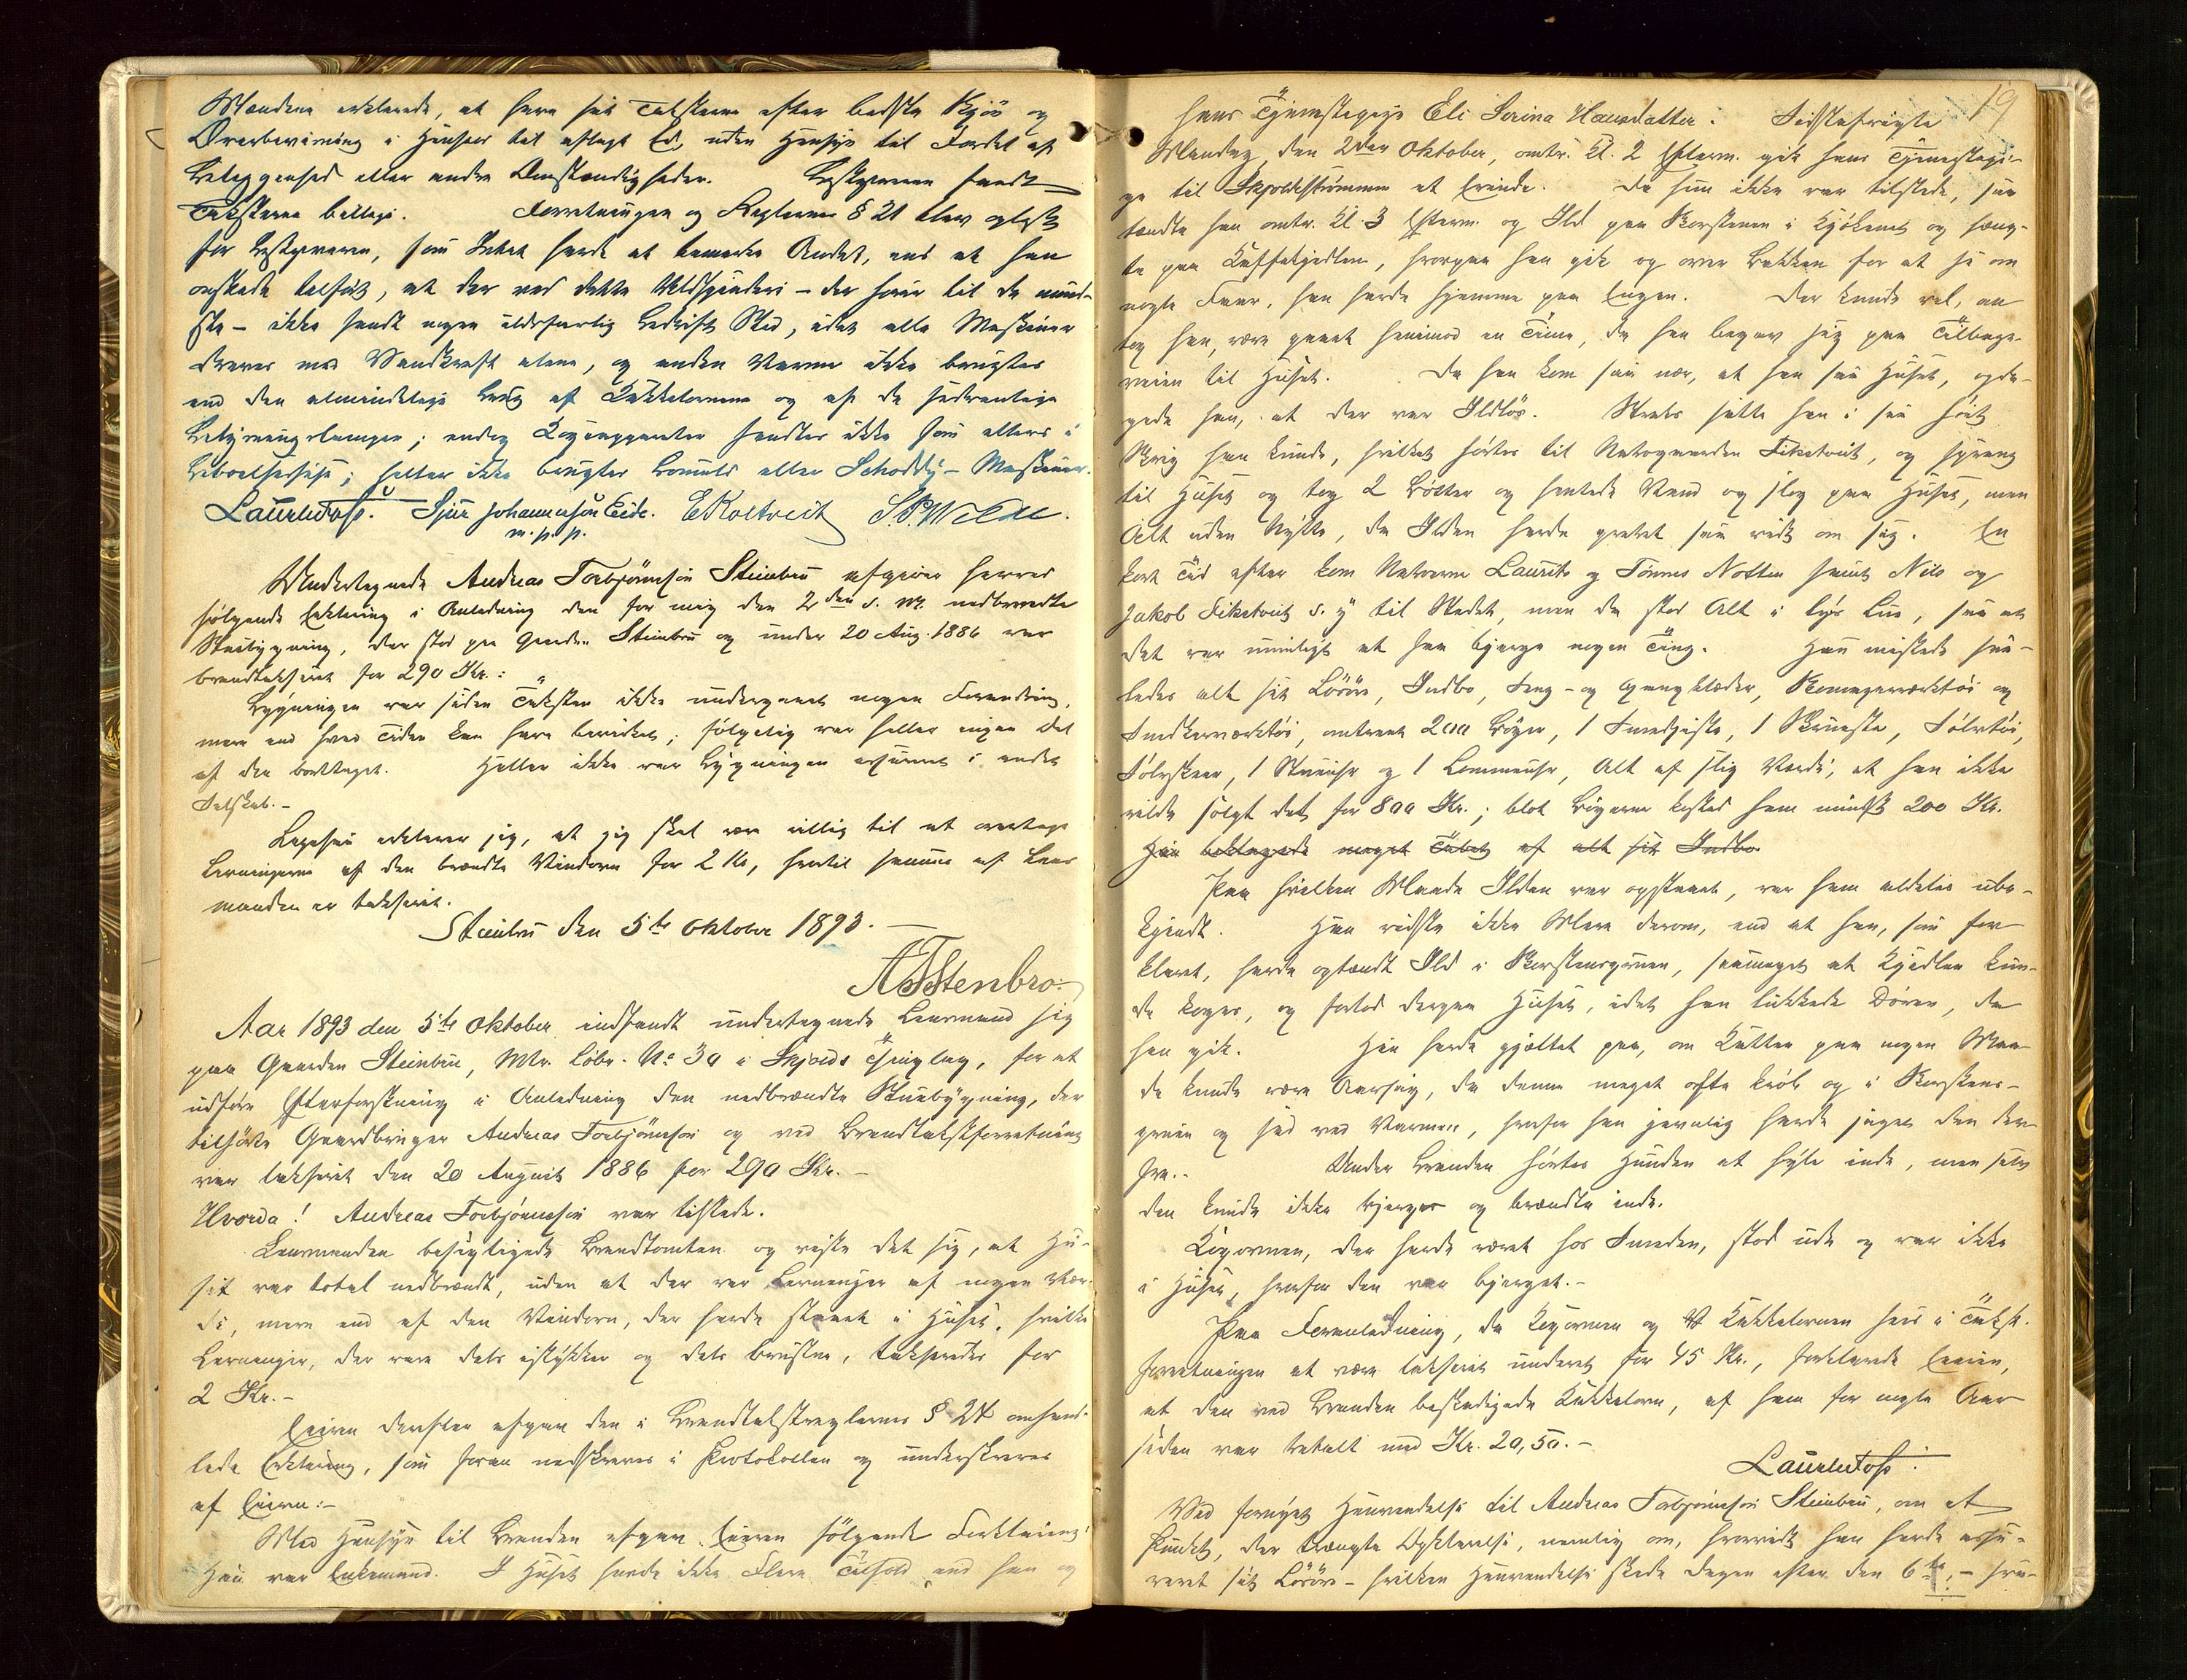 Mændene erklærede, at have sat Taksterne efter bedste Skjøn og
Overbevisning i Henhold til aflagt Ed, uden Hensyn til Fordel af
Beliggenhed eller andre Omstændigheder. Bestyreren fandt
Taksterne billige. Forretningen og Reglernes § 21 blev oplæst
for Bestyreren, som Intet havde at bemærke Andet, end at han
ønskede tilført, at der ved dette Uldspinderi – der hører til de mind-
ste – ikke fandt nogen ildsfarlig Bedrift Sted, idet alle Maskiner
dreves med Vandkraft alene, og anden Varme ikke brugtes
end den almindelige Brug af Kakkelovnene og af de sædvanlige
Belysningslamper; andre Kogeapparater fandtes ikke som ellers i
Beboelseshuse; heller ikke brugtes Bomuld eller Schoddy-Maskiner.
Sjur Johannesøn Eide. E Roltveit
m. p. p.
Undertegnede Andreas Torbjørnsøn Steinbru afgiver herved
følgende Erklæring i Anledning den for mig den 2den d. M. nedbrændte
Stuebygning, der stod paa Gaarden Steinbru og under 20 Aug. 1886 var
brandtakseret for 290 Kr.:
Bygningen var siden Taksten ikke undergaaet nogen Forandring,
mere end hvad Tiden kan have bevirket; følgelig var heller ingen Del
af den borttaget. Heller ikke var Bygningen assureret i andet
Selskab. –
Ligesaa erklærer jeg, at jeg skal være villig til at overtage
Levningerne af den brændte Bindovn for 2 Kr, hvortil samme af Lens
manden er takseret.
Steinbru den 5te Oktober 1893. –
A T Stenbro.
Aar 1893 den 5te Oktober indfandt undertegnede Lensmand sig
paa Gaarden Steinbru, Mtr. Løbe-No 30 i Skjolds Thinglag, for at
udføre Efterforskning i Anledning den nedbrændte Stuebygning, der
tilhørte Gaardbruger Andreas Torbjørnsøn og ved Brandtakstforretning
var takseret den 20 August 1886 for 290 Kr. –
Hvorda! Andreas Torbjørnsøn var tilstede.
Lensmanden besigtigede Brandtomten og viste det sig, at Hu-
set var total nedbrændt, uden at der var Levninger af nogen Vær-
di, mere end af den Bindovn, der havde staaet i Huset, hvilke
Levninger, der vare dels istykker og dels brustne, takseredes for
2 Kr. –
Eieren derefter afgav den i Brandtakstreglernes § 24 omhand-
lede Erklæring, som foran nedskreves i Protokollen og underskreves
af Eieren: –
Med Hensyn til Branden afgav Eieren følgende Forklaring:
Han var Enkemand. I Huset havde ikke Flere Tilhold end han og
19
hans Tjenestepige Eli Serina Hansdatter. Sidstafvigte
Mandag den 2den Oktober, omtr. Kl. 2 Efterm. gik hans Tjenestepi-
ge til Skjoldstrømmen et Ærinde. Da hun ikke var tilstede, saa
tændte han omtr. Kl. 3 Efterm. og Ild paa Skorstenen i Kjøkenet og hæng-
te paa Kaffekjedlen, hvorpaa han gik og over Bækken for at se om
nogle Faar, han havde hjemme paa Engen. Der kunde vel, an
tog han, være gaaet henimod en Time, da han begav sig paa Tilbage-
veien til Huset. Da han kom saa nær, at han saa Huset, opda-
gede han, at der var Ildløs. Straks satte han i saa høit
Skrig han kunde, hvilket hørtes til Nabogaarden Fikstveit, og sprang
til Huset og tog 2 Bøtter og hentede Vand og slog paa Huset, men
Alt uden Nytte, da Ilden havde grebet saa vidt om sig. En
kort Tid efter kom Naboerne Laurits og Tønnes Notten samt Nils og
Jakob Fikstveit s. y til Stedet, men da stod Alt i lys Lue, saa at
det var umuligt at faa bjerge nogen Ting. Han mistede saa-
ledes alt sit Løsøre, Indbo, Seng- og Gangklæder, Skomagerværktøi og
Snedkerværktøi, omtrent 200 Bøger, 1 Smedjeste, 1 Skrueste, Sølvtøi,
Sølvskeer, 1 Stueuhr og 1 Lommeuhr, Alt af slig Værdi, at han ikke
vilde solgt det for 800 Kr.; blot Bøgerne kosted ham mindst 200 Kr.
Han beklagede meget Tabet af alt sit Indbo.
Paa hvilken Maade Ilden var opstaaet, var ham aldeles ube-
kjendt. Han vidste ikke Mere derom, end at han, som for
klaret, havde optændt Ild i Skorstensgruen, saameget at Kjedlen kun-
de koges, og forlod derpaa Huset, idet han lukkede Døren, da
han gik. Han havde gjættet paa, om Katten paa nogen Maa-
de kunde være Aarsag, da denne meget ofte krøb op i Skorstens-
gruen og sad ved Varmen, hvorfor han jevnlig havde jaget den der-
fra. – Under Branden hørtes Hunden at hyle inde, men selv
den kunde ikke bjerges og brændte inde.
Kogovnen, der havde været hos Smeden, stod ude og var ikke
i Huset, hvorfor den var bjerget. –
Paa Foranledning, da Kogovnen og Kakkelovnen saaes i Takst-
forretningen at være takseret underet for 45 Kr., forklarede Eieren,
at den ved Branden beskadigede Kakkelovn, af ham for nogle Aar
siden var betalt med Kr. 20,50. –
Ved fornyet Henvendelse til Andreas Torbjørnsøn Steinbru, om et
Punkt, der trængte Opklarelse, nemlig om, hvorvidt han havde assu-
reret sit Løsøre – hvilken Henvendelse skede Dagen efter den 6te, – sva-